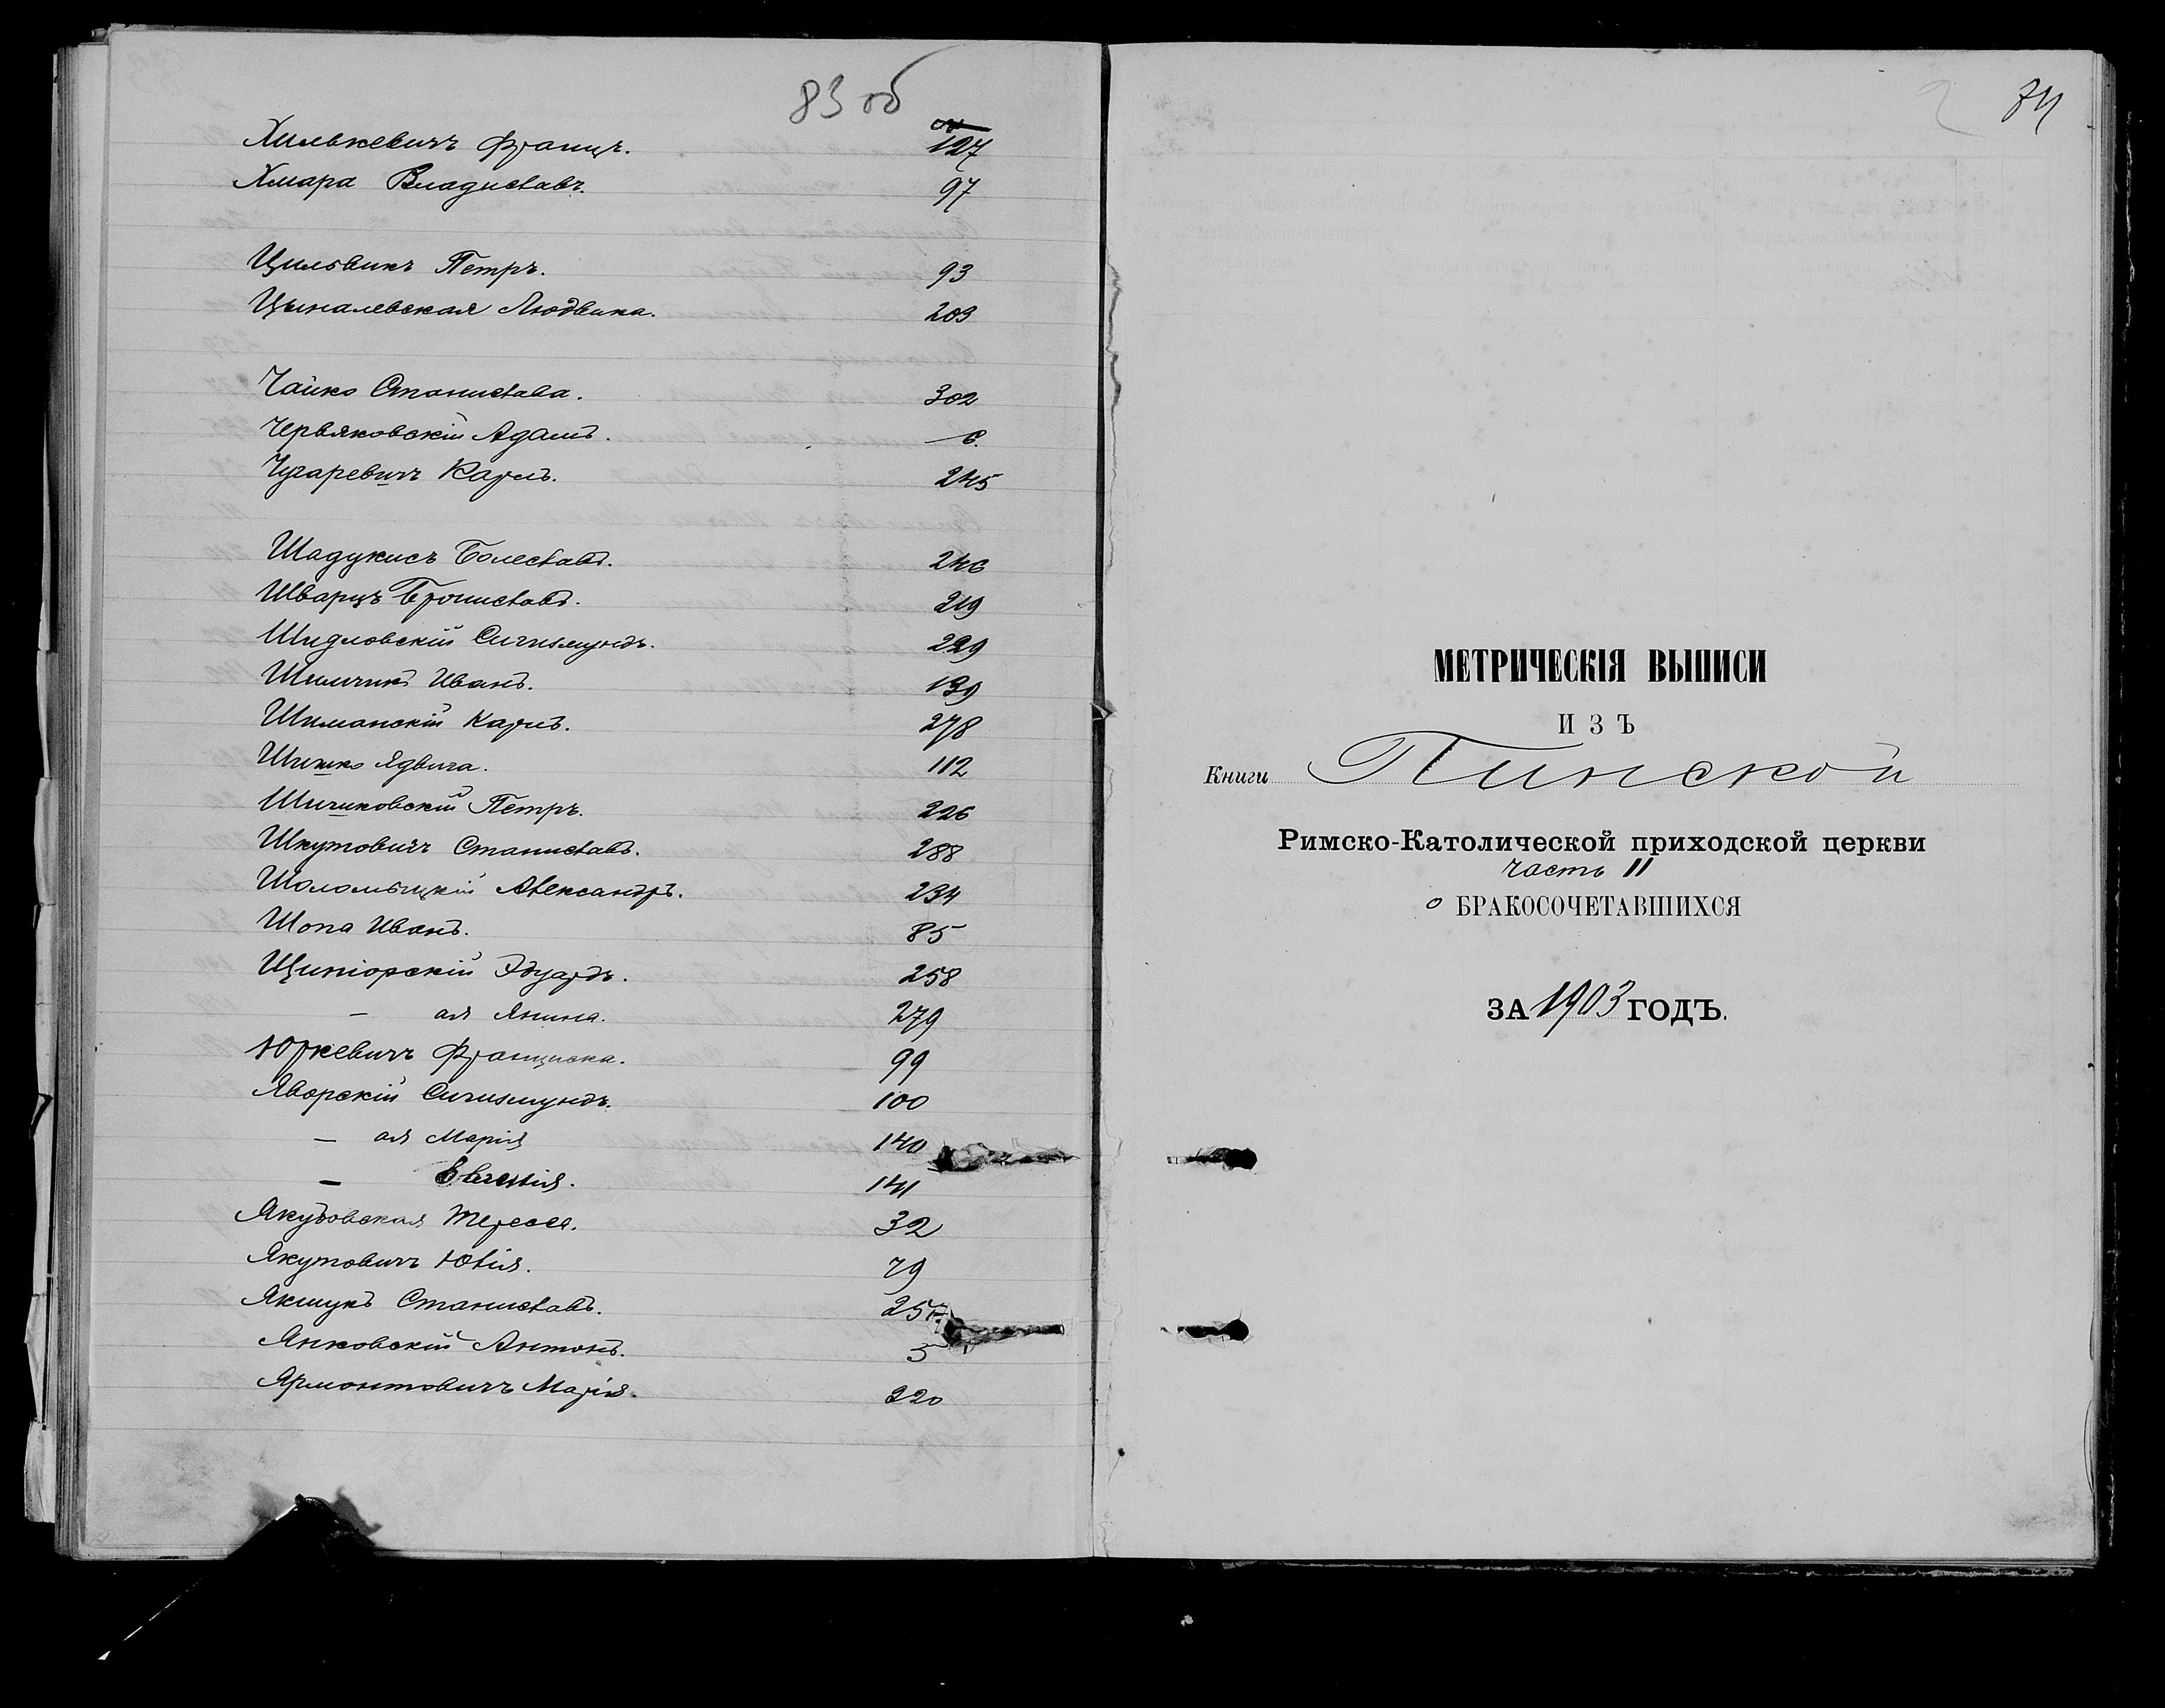 83 об
Хилькевичъ Францъ. 127
Хмара Владиславъ. 97
Цильвикъ Петръ. 93
Цыналевская Людвика. 203
Чайко Станислава. 302
Червяковскій Адамъ. 6.
Чугаревичъ Карлъ. 245
Шадукисъ Болеславъ. 246
Шварцъ Брониславъ. 219
Шидловскій Сигизмундъ. 229
Шимчикъ Иванъ. 139
Шиманскій Карлъ. 278
Шишко Ядвига. 112
Шишковскій Петръ. 226
Шкутовичъ Станиславъ. 288
Шоломыцкій Александръ. 234
Шопа Иванъ. 85
Щипіорскій Эдуардъ. 258
— ая Янина. 279
Юркевичъ Франциска. 99
Яворскій Сигизмундъ. 100
— ая Марія 140
— 141
Якубовская Тересса. 32
Якутовичъ Юлія. 79
Якшукъ Станиславъ. 257
Янковскій Антонъ. 5
Ярмонтовичъ Марія. 320
84
МЕТРИЧЕСКІЯ ВЫПИСИ
ИЗЪ
Книги Пинской
Римско-Католической приходской церкви
часть II
о БРАКОСОЧЕТАВШИХСЯ
ЗА 1903 ГОДЪ.